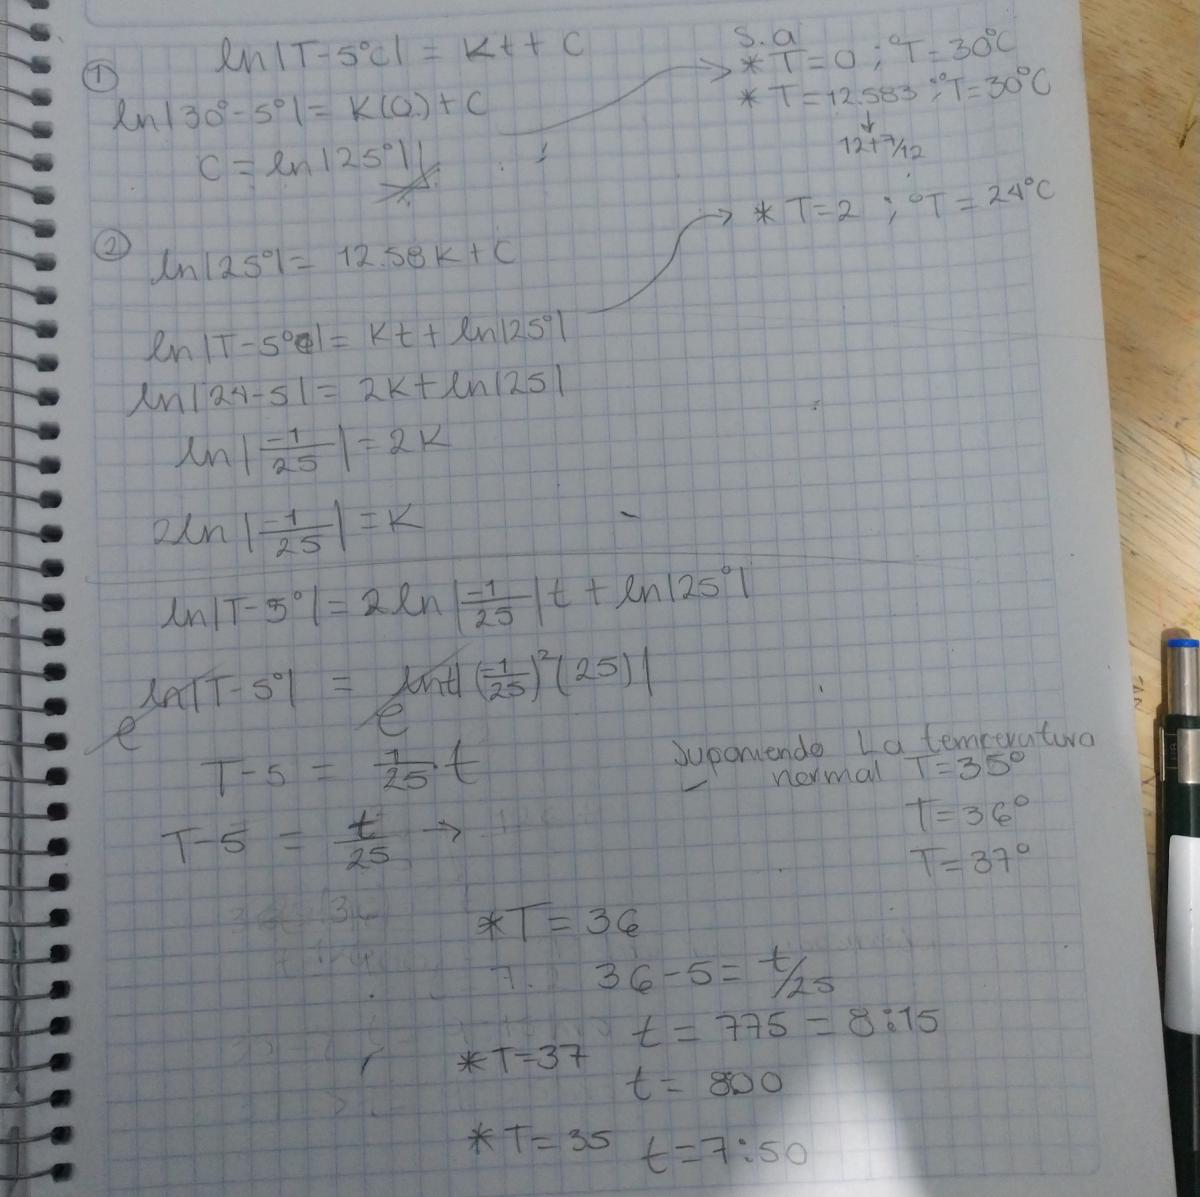 ① ln|T-5°C| = Kt + C
ln|30°-5°| = K(0) + C
C = ln|25°|
s.a
* T=0 ; °T=30°C
* T=12.583 ; °T=30°C
12+7/12
* T=2 ; °T=24°C
② ln|25°| = 12.58K + C
ln|T-5°C| = Kt + ln|25°|
ln|24-5| = 2K + ln|25|
ln|-1/25| = 2K
2ln|-1/25| = K
ln|T-5°| = 2ln|-1/25|t + ln|25°|
e^ln|T-5°| = e^lnt|(-1/25)²(25)|
T-5 = 1/25 t
T-5 = t/25 →
Suponiendo La temperatura
normal T=35°
T=36°
T=37°
*T=36
36-5 = t/25
t = 775 = 8:15
*T=37
t = 800
*T=35 t=7:50